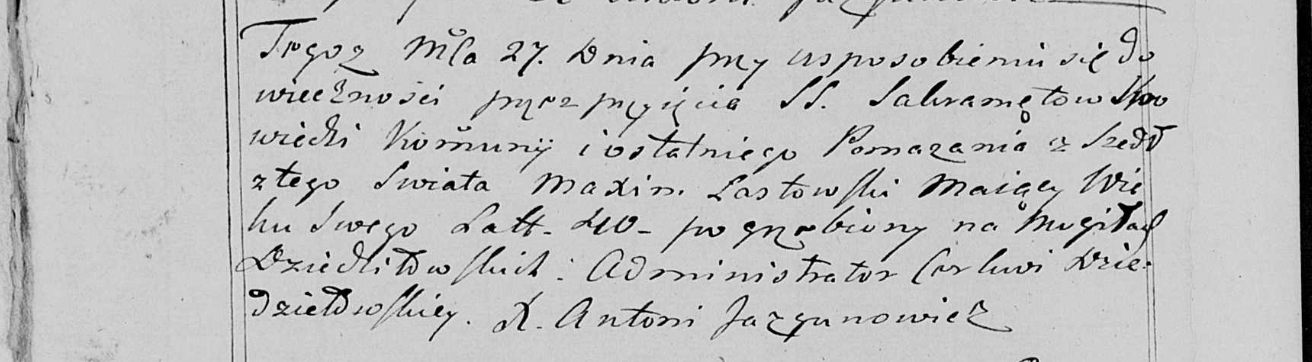 Tegoż Mca 27. Dnia przy usposobieniu się do
wieczności przez przyięcia SS. Sakramętow Spo
wiedzi Kom̃unij i ostatniego Pomazania z szedł
z tego Swiata Maxim Łastowski Maiący Wie
ku Swego Latt. 40 - pogrzebiony na Mogiłach
Dziedziłowskich: Administrator Cerkwi Dzie:
dziełowskiey. X. Antoni Jazgunowicz